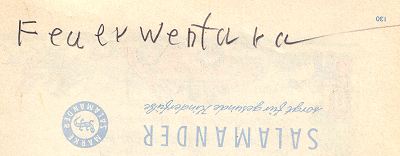 Feuerwentara
130
SALAMANDER
sorgt für gesunde Kinderfüße
MARKE
SALAMANDER